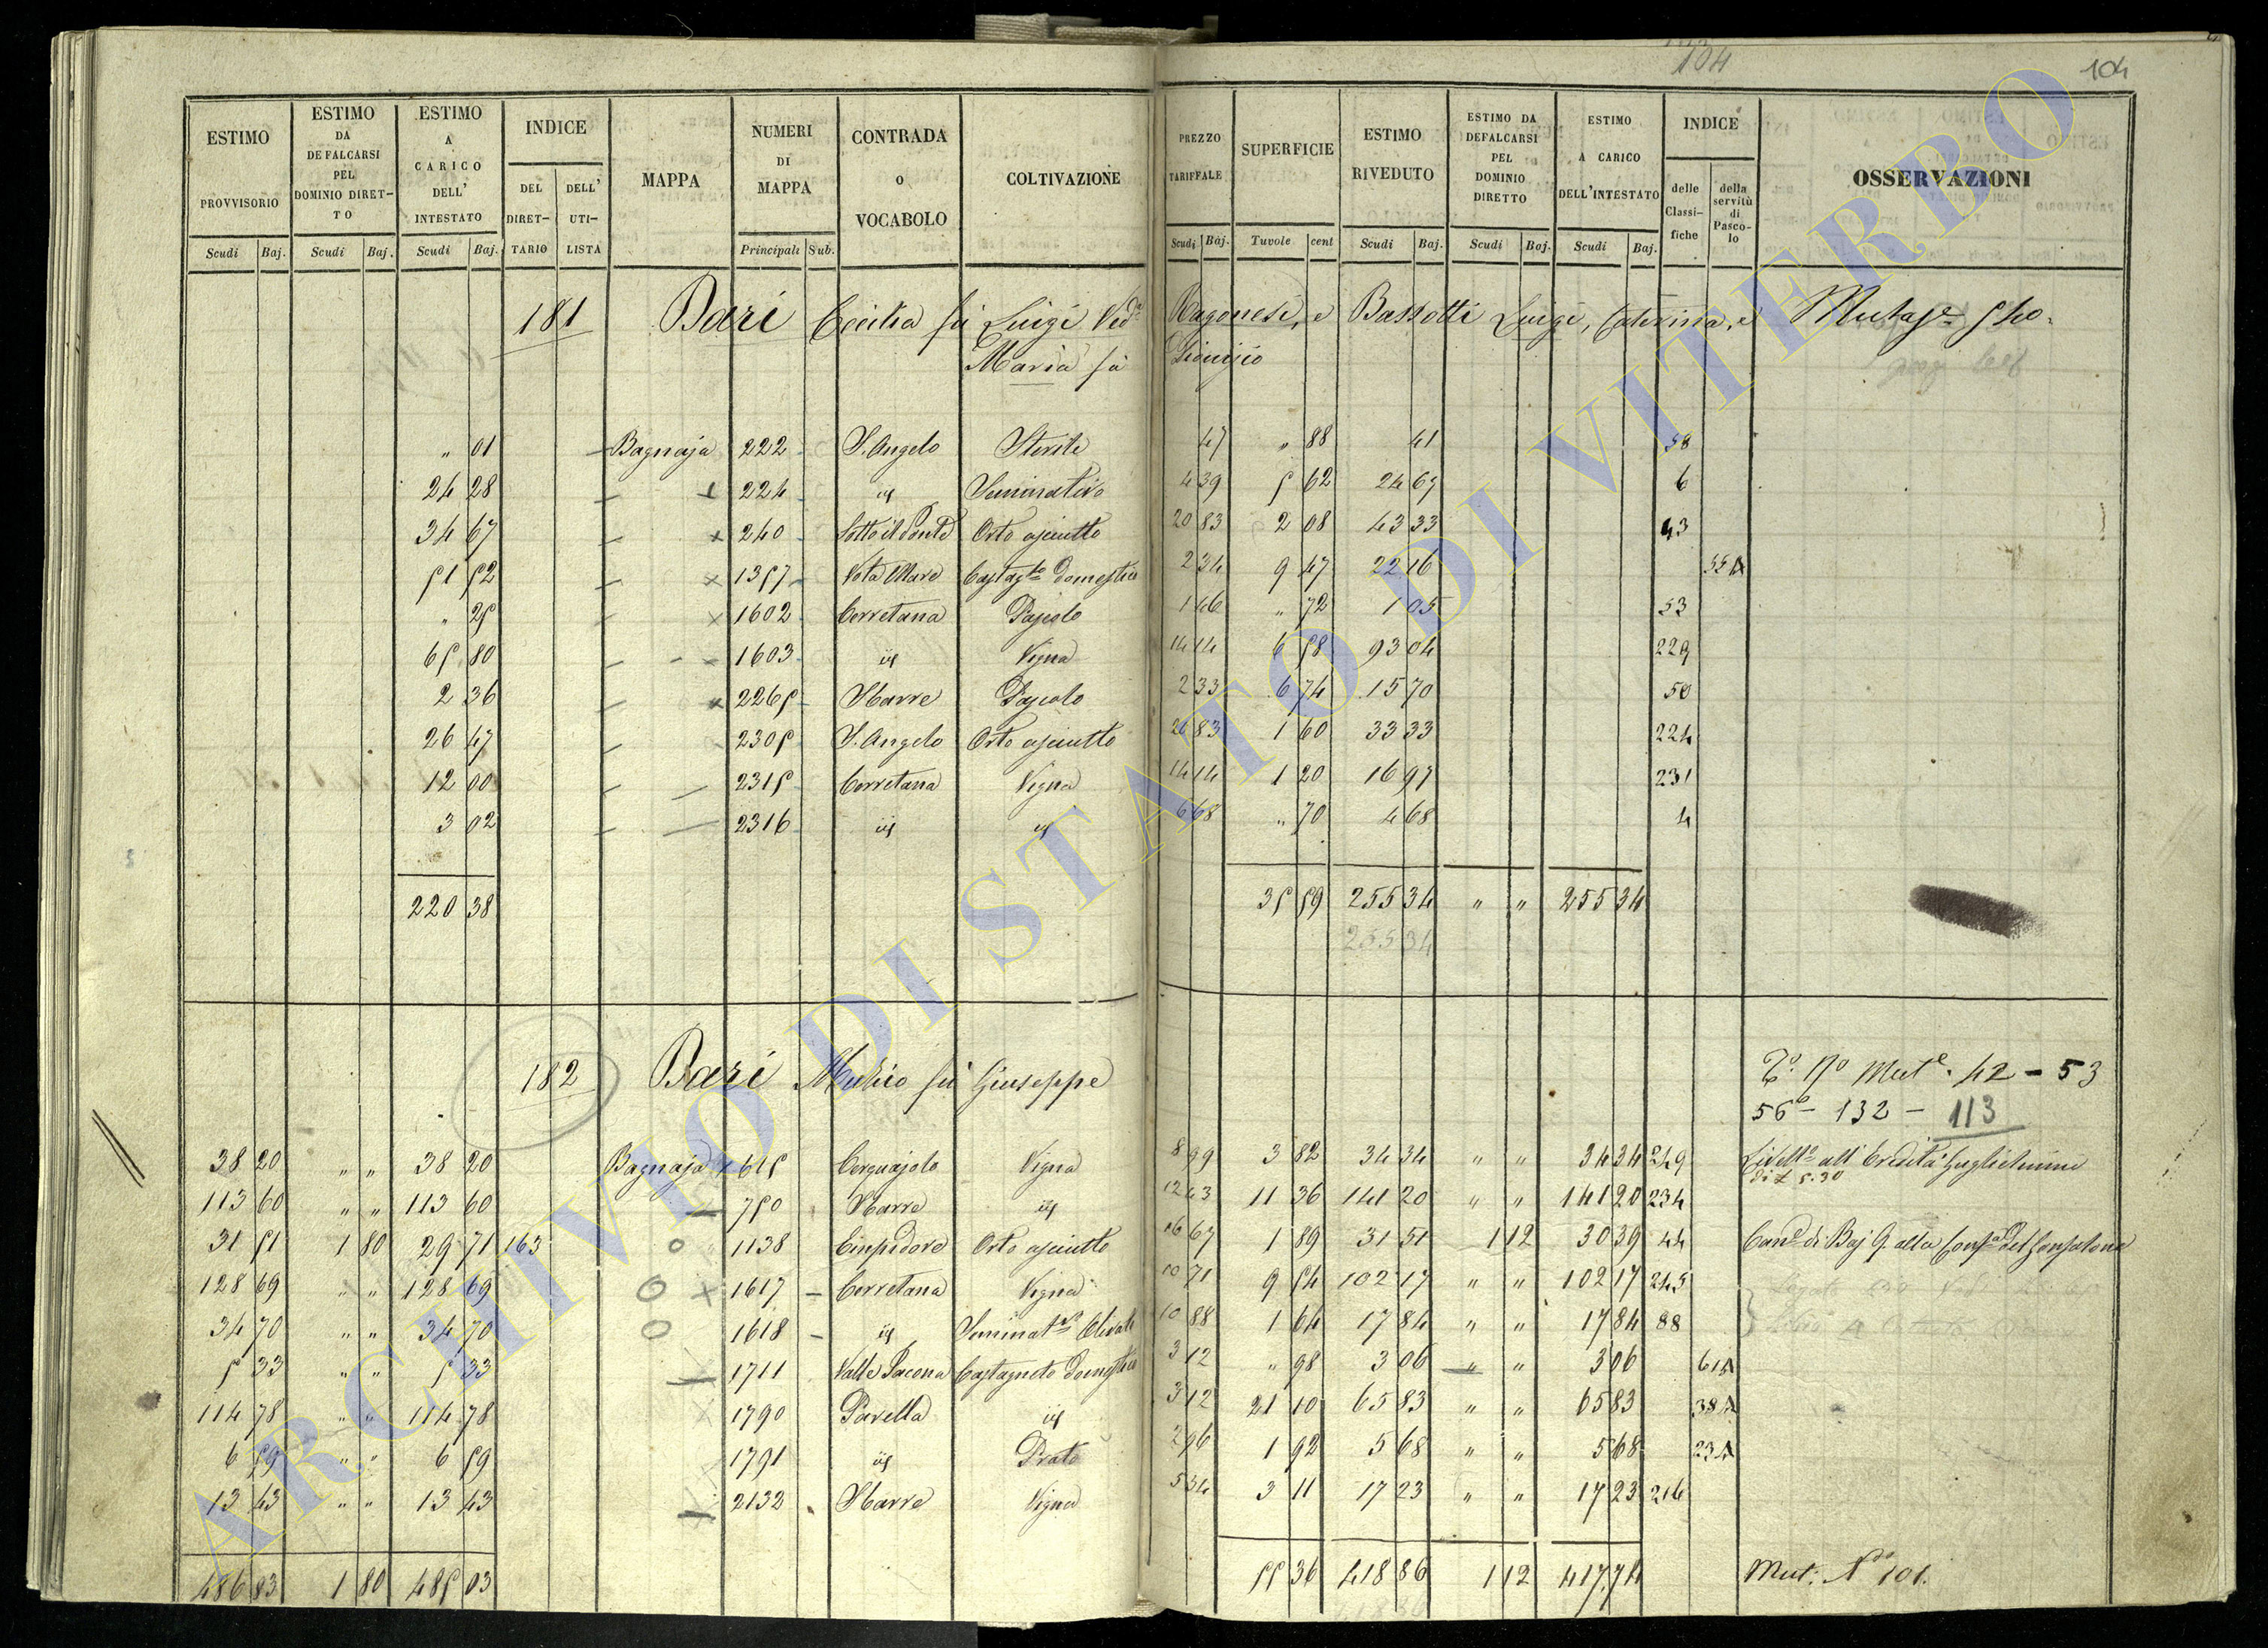 104
104
ESTIMO PROVVISORIO Scudi Baj.
ESTIMO DA DEFALCARSI PEL DOMINIO DIRETTO Scudi Baj.
ESTIMO A CARICO DELL' INTESTATO Scudi Baj.
INDICE DEL DIRETTARIO DELL' UTILISTA
MAPPA
NUMERI DI MAPPA Principali Sub.
CONTRADA O VOCABOLO
COLTIVAZIONE
PREZZO TARIFFALE Scudi Baj.
SUPERFICIE Tavole cent
ESTIMO RIVEDUTO Scudi Baj.
ESTIMO DA DEFALCARSI PEL DOMINIO DIRETTO Scudi Baj.
ESTIMO A CARICO DELL'INTESTATO Scudi Baj.
INDICE delle Classifiche della servitù di Pascolo
OSSERVAZIONI
181 Bari Cecilia fù Luigi Ved.a Ragonesi, e Bassotti Luigi, Caterina, e
Maria fù Dionisio
" 01 Bagnaja 222 S. Angelo Sterile 47 " 88 41 58
24 28 224 id Seminativo 4 39 5 62 24 67 6
34 67 240 Sotto il Ponte Orto asciutto 20 83 2 08 43 33 43
51 52 1357 Castag.to domestico 2 34 9 47 22 16 55 A
" 25 1602 Cerretana Pascolo 1 46 " 72 1 05 53
65 80 1603 id Vigna 14 14 6 58 93 04 229
2 36 2265 Sbarre Pascolo 2 33 6 74 15 70 50
26 47 2305 S. Angelo Orto asciutto 20 83 1 60 33 33 224
12 00 2315 Cerretana Vigna 14 14 1 20 16 97 231
3 02 2316 id id 6 68 " 70 4 68 4
220 38 35 59 255 34 " " 255 34
255 34
182 Bari Muzio fù Giuseppe
T.o N.o Mut.e 42 - 53
56 - 132 - 113
38 20 " " 38 20 Bagnaja 1615 Cerquajolo Vigna 8 99 3 82 34 34 " " 34 34 249 Livell.o all'Eredità Guglielmini
di £ 5.30
113 60 " " 113 60 750 Sbarre id 12 43 11 36 141 20 " " 141 20 234
31 51 1 80 29 71 163 1138 Cinpidoro Orto asciutto 16 67 1 89 31 51 1 12 30 39 44 Can.e di Baj 9. alla Conf.a del Gonfalone
128 69 " " 128 69 1617 Cerretana Vigna 10 71 9 54 102 17 " " 102 17 245
34 70 " " 34 70 1618 id Seminat.vo Olivato 10 88 1 64 17 84 " " 17 84 88
5 33 " " 5 33 1711 Valle Castagneto domestico 3 12 " 98 3 06 " " 3 06 61 A
114 78 " " 114 78 1790 Pavella id 3 12 21 10 65 83 " " 65 83 38 A
6 59 " " 6 59 1791 id Prato 2 96 1 92 5 68 " " 5 68 23 A
13 43 " " 13 43 2132 Sbarre Vigna 5 54 3 11 17 23 " " 17 23 216
486 83 1 80 485 03 55 36 418 86 1 12 417.74 Mut: N.o 101.
ARCHIVIO DI STATO DI VITERBO